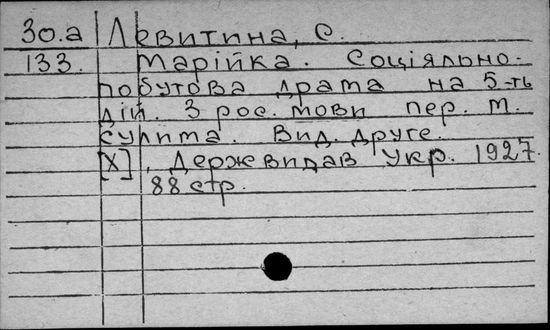 30.а Левитина, С.
133. Марійка. Соціяльно-
побутова драма на 5-ть
дій. З рос. мови пер. М.
Сулима. Вид. друге.
[Х], Держвидав Укр. 1927.
88 стр.